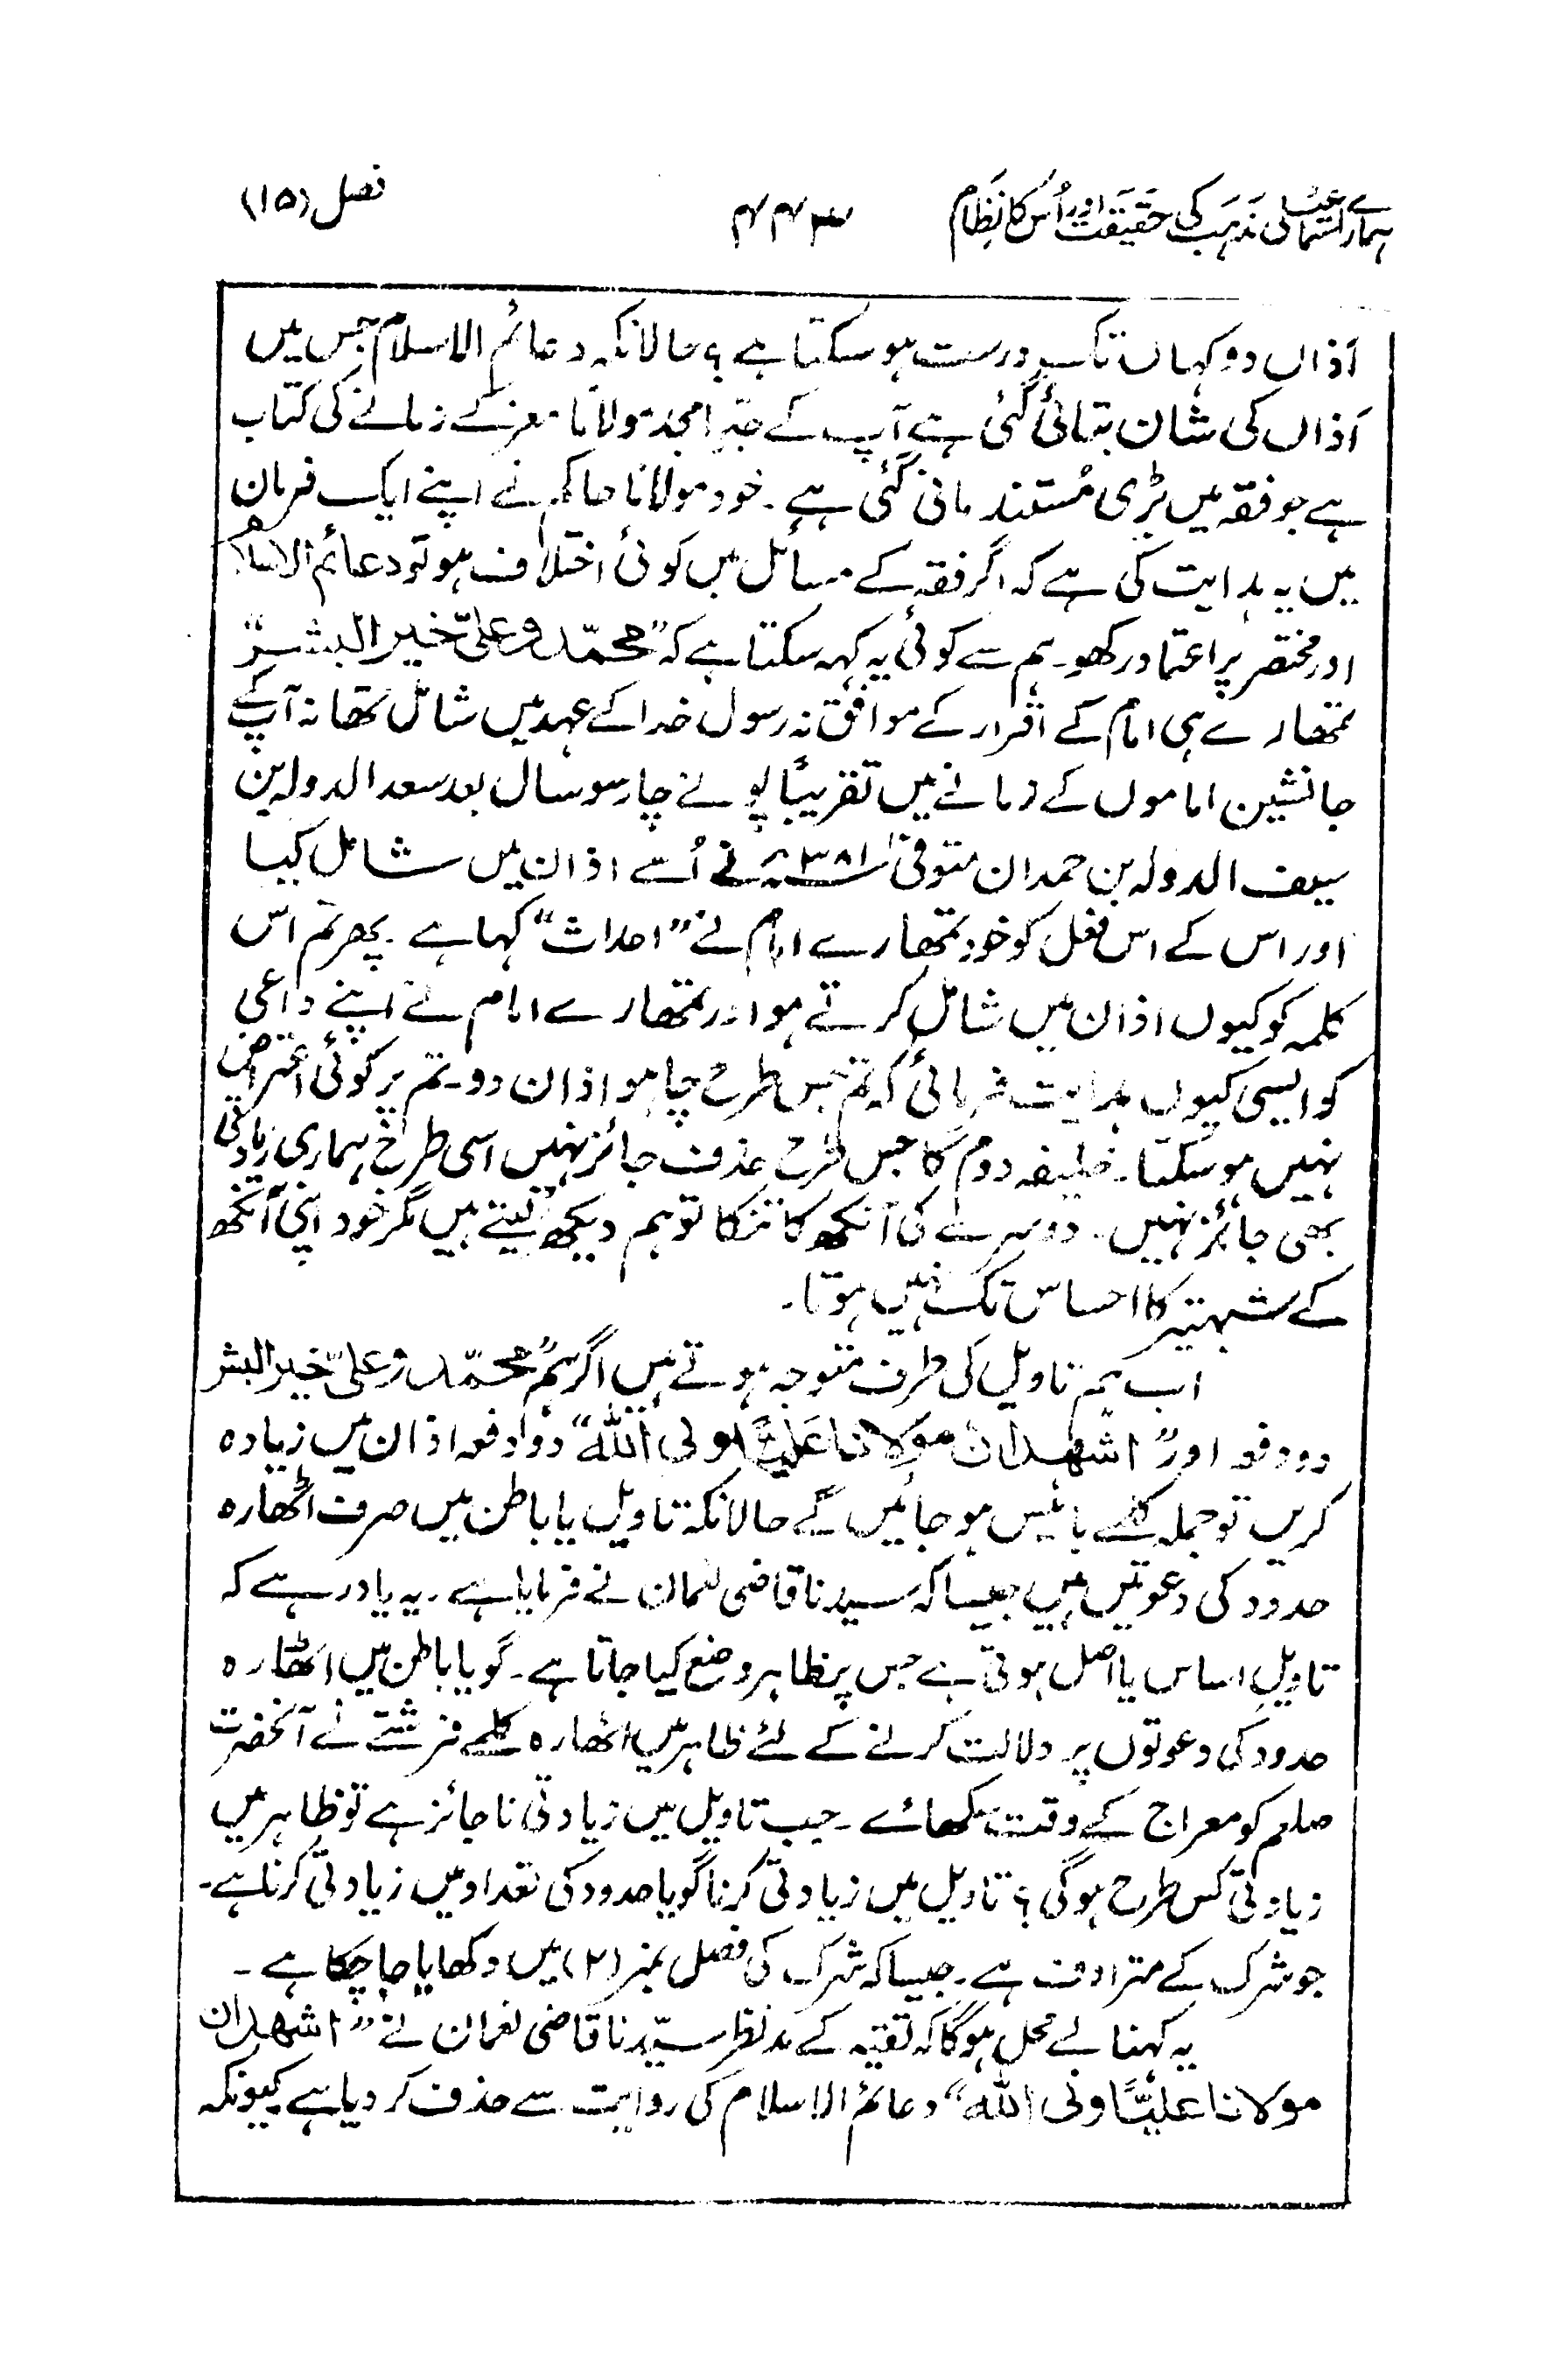 ہمارے اسماعیلی مذہب کی حقیقت اور اُس کا نظام ۴۴۳ فصل (۱۵)
اَذاں دو کہاں تک درست ہو سکتا ہے؟ حالانکہ دعائم الاسلام جس میں
اَذاں کی شان بتائی گئی ہے آپ کے جدِّ امجد مولانا معز کے زمانے کی کتاب
ہے جو فقہ میں بڑی مُستند مانی گئی ہے۔ خود مولانا حاکم نے اپنے ایک فرمان
میں یہ ہدایت کی ہے کہ اگر فقہ کے مسائل میں کوئی اختلاف ہو تو دعائم الاسلام
اور مختصر پر اعتماد رکھو۔ ہم سے کوئی یہ کہہ سکتا ہے کہ ”محمّد وعلیّ خیر البشر“
تمھارے ہی امام کے اقرار کے موافق نہ رسول خدا کے عہد میں شامل تھا نہ آپ کے
جانشین اماموں کے زمانے میں تقریباً پونے چار سو سال بعد سعد الدولہ بن
سیف الدولہ بن حمدان متوفی ۳۸۱ھ نے اُسے اذان میں شامل کیا
اور اس کے اس فعل کو خود تمھارے امام نے ”احداث“ کہا ہے۔ پھر تم اس
کلمہ کو کیوں اذان میں شامل کرتے ہو اور تمھارے امام نے اپنے داعی
کو ایسی کیوں ہدایت فرمائی کہ تم جس طرح چاہو اذان دو۔ تم پر کوئی اعتراض
نہیں ہو سکتا۔ خلیفہ دوم کا جس طرح حذف جائز نہیں اسی طرح ہماری زیادتی
بھی جائز نہیں۔ دوسرے کی آنکھ کا تنکا تو ہم دیکھ لیتے ہیں مگر خود اپنی آنکھ
کے شہتیر کا احساس تک نہیں ہوتا۔
اب ہم تاویل کی طرف متوجہ ہوتے ہیں اگر ہم ”محمّد وعلیّ خیر البشر
دو دفعہ اور ”اشهد ان مولانا علیًّا ولی الله“ دو دفعہ اذان میں زیادہ
کریں تو جملہ کلمے بائیس ہو جائیں گے حالانکہ تاویل یا باطن میں صرف اٹھارہ
حدود کی دعوتیں ہیں جیسا کہ سیدنا قاضی نعمان نے فرمایا ہے۔ یہ یاد رہے کہ
تاویل اساس یا اصل ہوتی ہے جس پر ظاہر وضع کیا جاتا ہے۔ گویا باطن میں اٹھارہ
حدود کی دعوتوں پر دلالت کرنے کے لئے ظاہر میں اٹھارہ کلمے فرشتے نے آنحضرت
صلعم کو معراج کے وقت سکھائے۔ جب تاویل میں زیادتی ناجائز ہے تو ظاہر میں
زیادتی کس طرح ہوگی؟ تاویل میں زیادتی کرنا گویا حدود کی تعداد میں زیادتی کرنا ہے۔
جو شرک کے مترادف ہے۔ جیسا کہ شرک کی فصل نمبر (۲) میں دکھایا جا چکا ہے۔
یہ کہنا بے محل ہوگا کہ تقیہ کے مدنظر سیّدنا قاضی نعمان نے ”اشهد ان
مولانا علیًّا ولی الله“ دعائم الاسلام کی روایت سے حذف کر دیا ہے کیونکہ